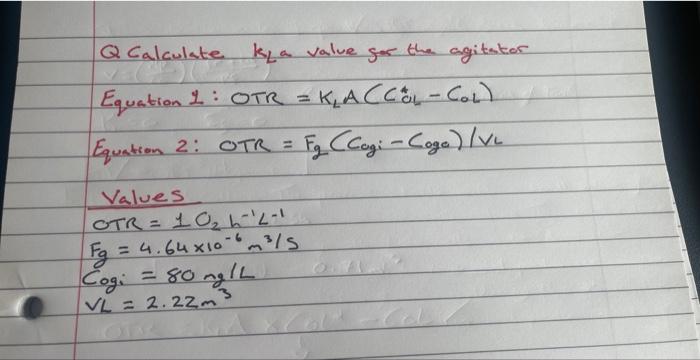 Q Calculate KLa value for the agitator
Equation 1: OTR = KLA(C*OL - COL)
Equation 2: OTR = Fg (Cogi - Cogo)/VL
Values
OTR = 1 O2 h-1L-1
Fg = 4.64x10-6 m3/s
Cogi = 80 mg/L
VL = 2.22m3